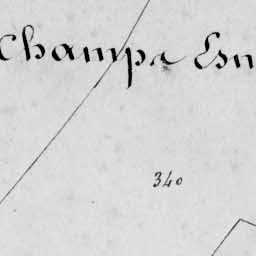 Champs Esn
340